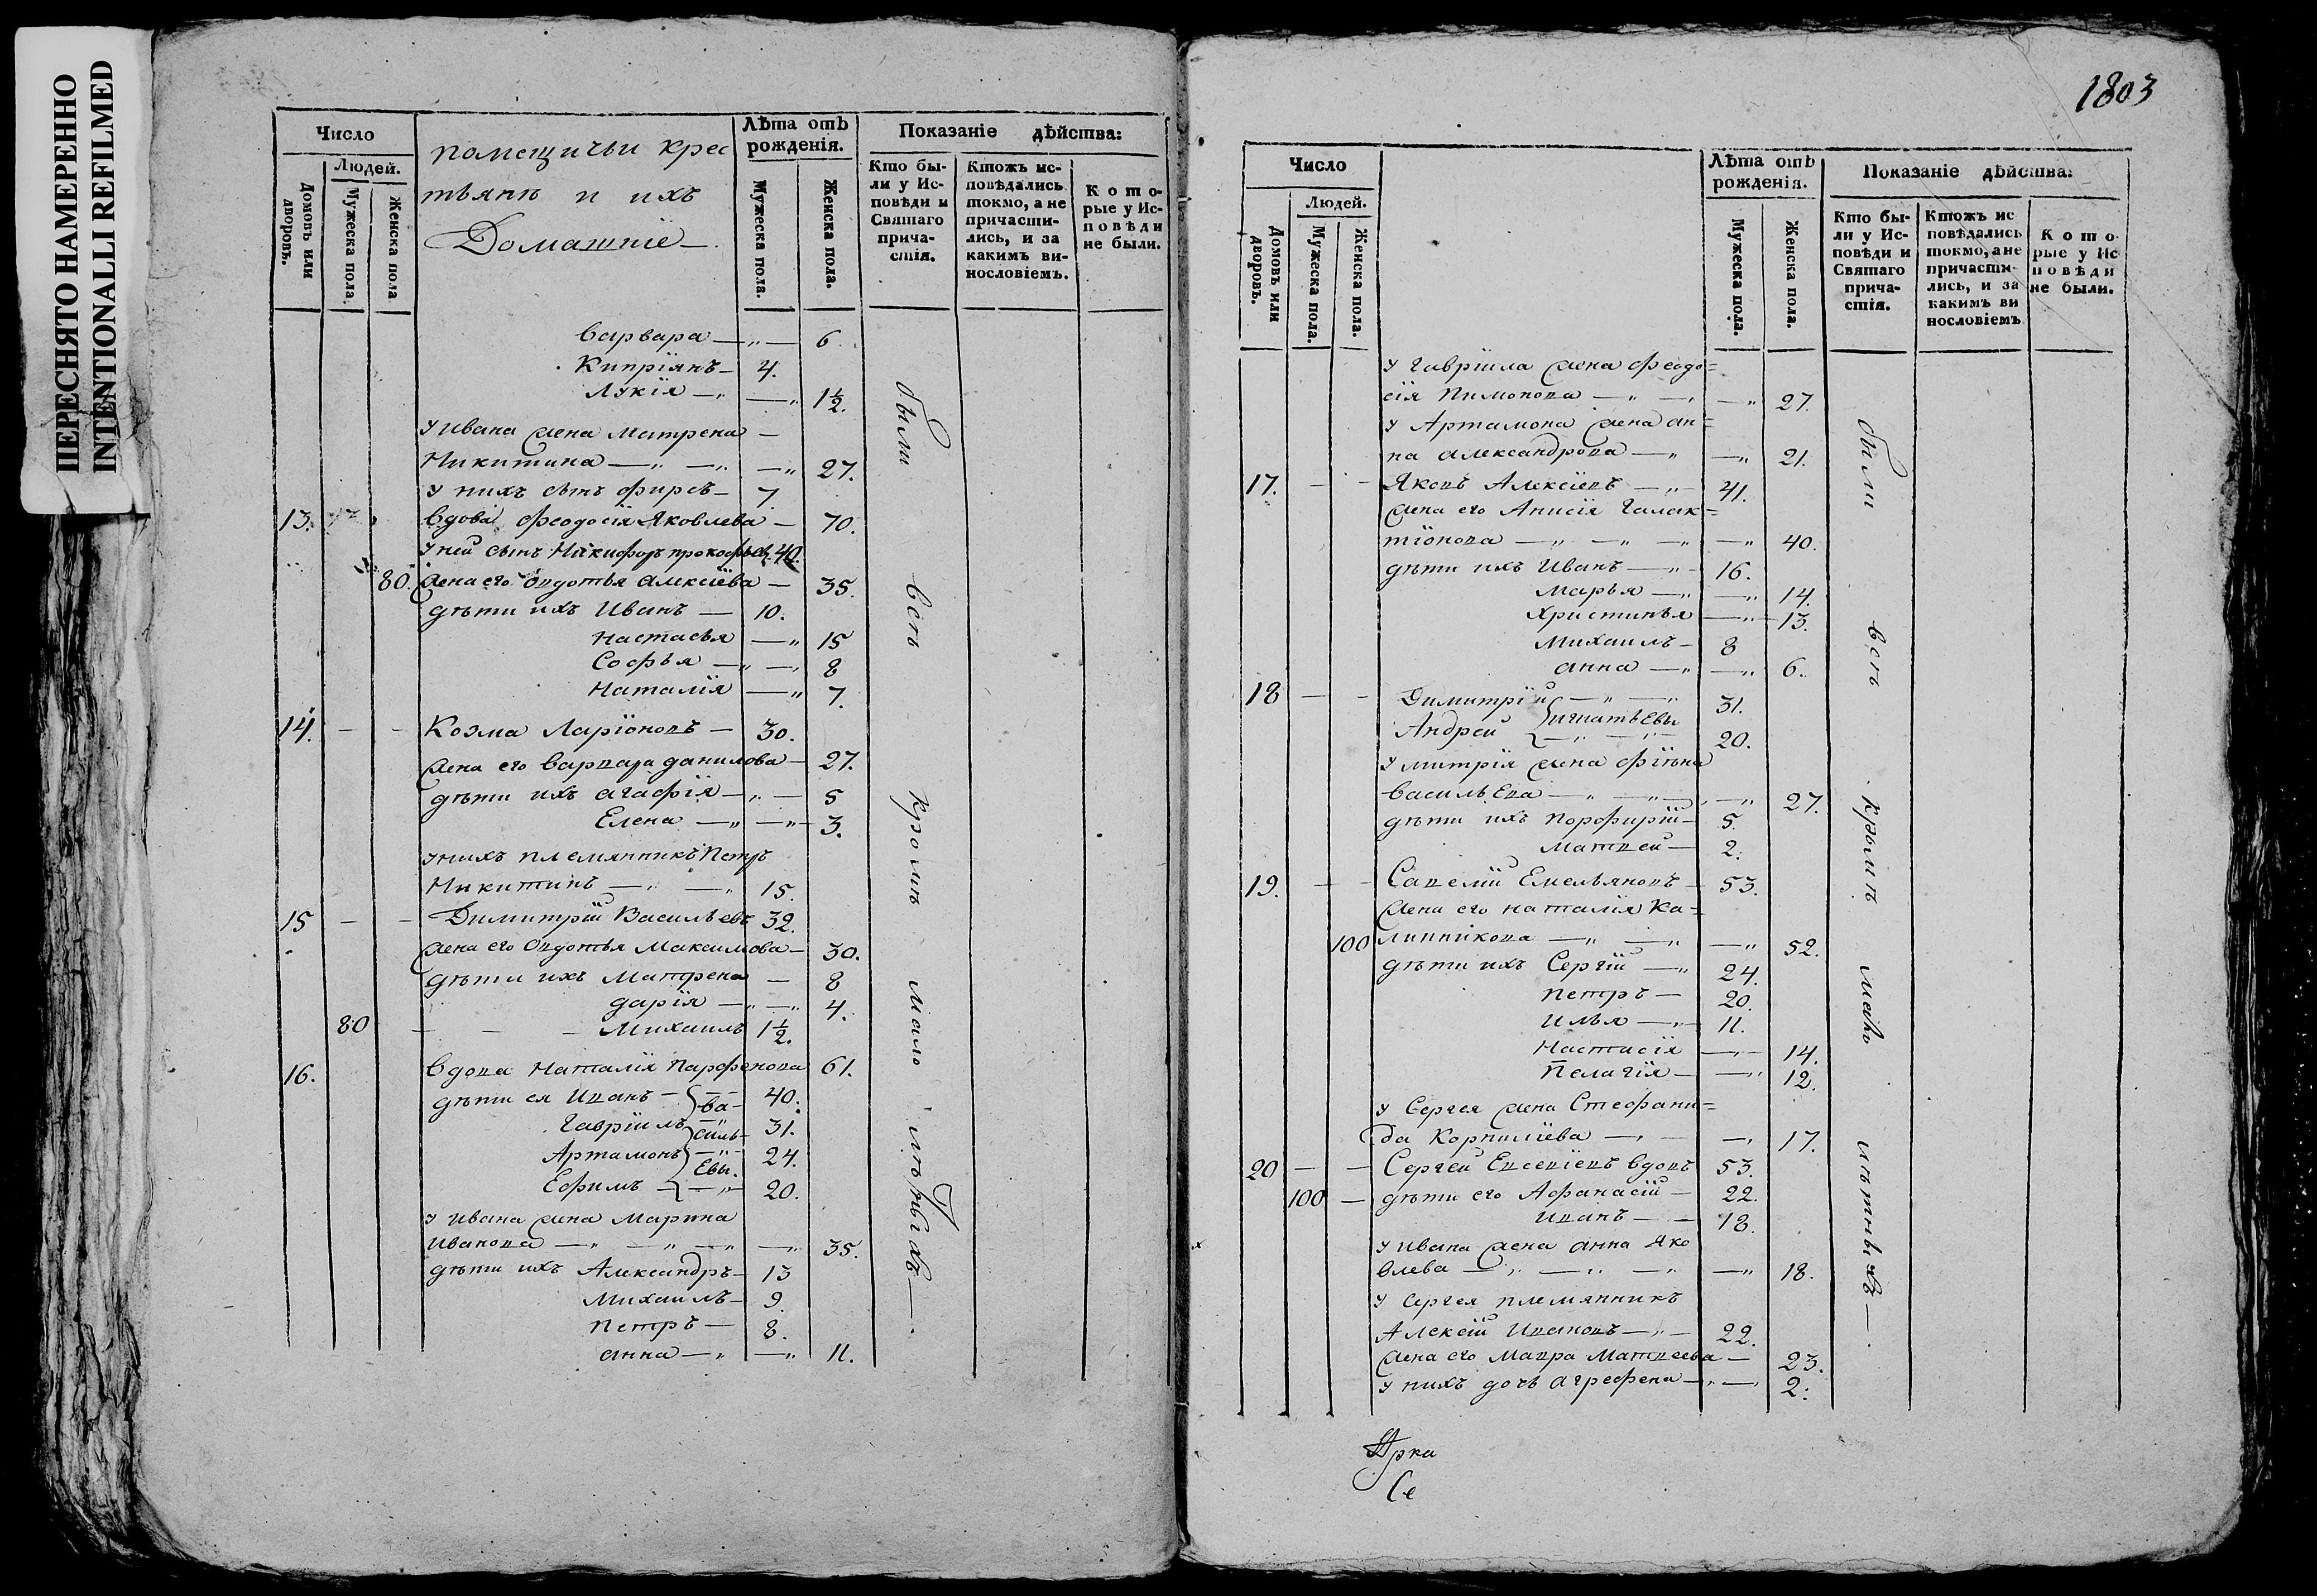 ПЕРЕСНЯТО НАМЕРЕННО
INTENTIONALLI REFILMED
Число
Людей.
Домовъ или дворовъ.
Мужеска пола.
Женска пола
помещичьи крес
тьянѣ и ихъ
Домашніе
Лѣта отъ рожденія.
Мужеска пола.
Женска пола.
Показаніе дѣйства:
Кто бы-
ли у Ис-
повѣди и
Святаго
прича-
стія.
Ктожъ ис-
повѣдались
токмо, а не
причасти-
лись, и за
какимъ ви-
нословіемъ.
Кото-
рые у Ис-
повѣди
не были.
Варвара — 6.
Кипріянъ — 4.
Лукія — 1½.
у Ивана жена Матрена —
Никитина — 27.
у нихъ сынъ Фирсъ — 7.
13. Вдова Феодосія Яковлева — 70.
у ней сынъ Никифоръ Прокофьевъ 40.
80. жена его Овдотья Алексіева — 35.
дѣти ихъ Иванъ — 10.
Настасья — 15
Софья — 8
Наталія — 7.
14. — - Козма Ларіоновъ — 30.
жена его Варвара Данилова — 27.
дѣти ихъ Агафія — 5
Елена — 3.
у нихъ племянникъ Петръ
Никитинъ — 15.
15 — - Димитрій Васильевъ 32.
жена его Овдотья Максимова — 30.
дѣти ихъ Матрена — 8
Дарія — 4.
80 — Михаилъ 1½.
16. Вдова Наталія Парфенова 61.
дѣти ея Иванъ — ва- 40.
Гавріилъ силь- 31.
Артамонъ Евы. 24.
Ефимъ — 20.
у Ивана жена Марина
Иванова — 35.
дѣти ихъ Александръ — 13
Михаилъ — 9.
Петръ — 8.
Анна — 11.
были всѣ кромѣ мало лѣтныхъ —.
1803
Число
Людей.
Домовъ или дворовъ.
Мужеска пола.
Женска пола.
Лѣта отъ рожденія.
Мужеска пола.
Женска пола.
Показаніе дѣйства:
Кто бы-
ли у Ис-
повѣди и
Святаго
прича-
стія.
Ктожъ ис
повѣдались
токмо, а не
причасти-
лись, и за
какимъ ви
нословіемъ
Кото-
рые у Ис
повѣди
не были.
у Гавріила жена Феодо=
сія Пимонова — 27.
у Артамона жена Ан=
на Александрова — 21.
17. — - Яковъ Алексіевъ — 41.
жена его Анисія Галак=
тіонова — 40.
дѣти ихъ Иванъ — 16.
Марья — 14.
Христинья — 13.
Михаилъ — 8
Анна — 6.
18 — - Димитрій — 31.
Андрей Игнатьевы 20.
у Митрія жена Фіѣна
Васильева — 27.
дѣти ихъ Порфирій — 5.
Матвей — 2.
19. — - Савелій Емельяновъ — 53.
жена его Наталія Ка=
100 линникова — 52.
дѣти ихъ Сергій — 24.
Петръ — 20.
Илья — 11.
Настасія — 14.
Пелагія — 12.
у Сергея жена Стефани=
да Корнилієва — 17.
20 — - Сергей Евсевіевъ вдовъ 53.
100 — дѣти его Афанасій — 22.
Иванъ — 18.
у Ивана жена Анна Яко
влева — 18.
у Сергея племянникъ
Алексій Ивановъ — 22.
жена его Мавра Матвеева — 23.
у нихъ дочь Агрефена — 2.
были всѣ кромѣ мало лѣтныхъ —.
Се